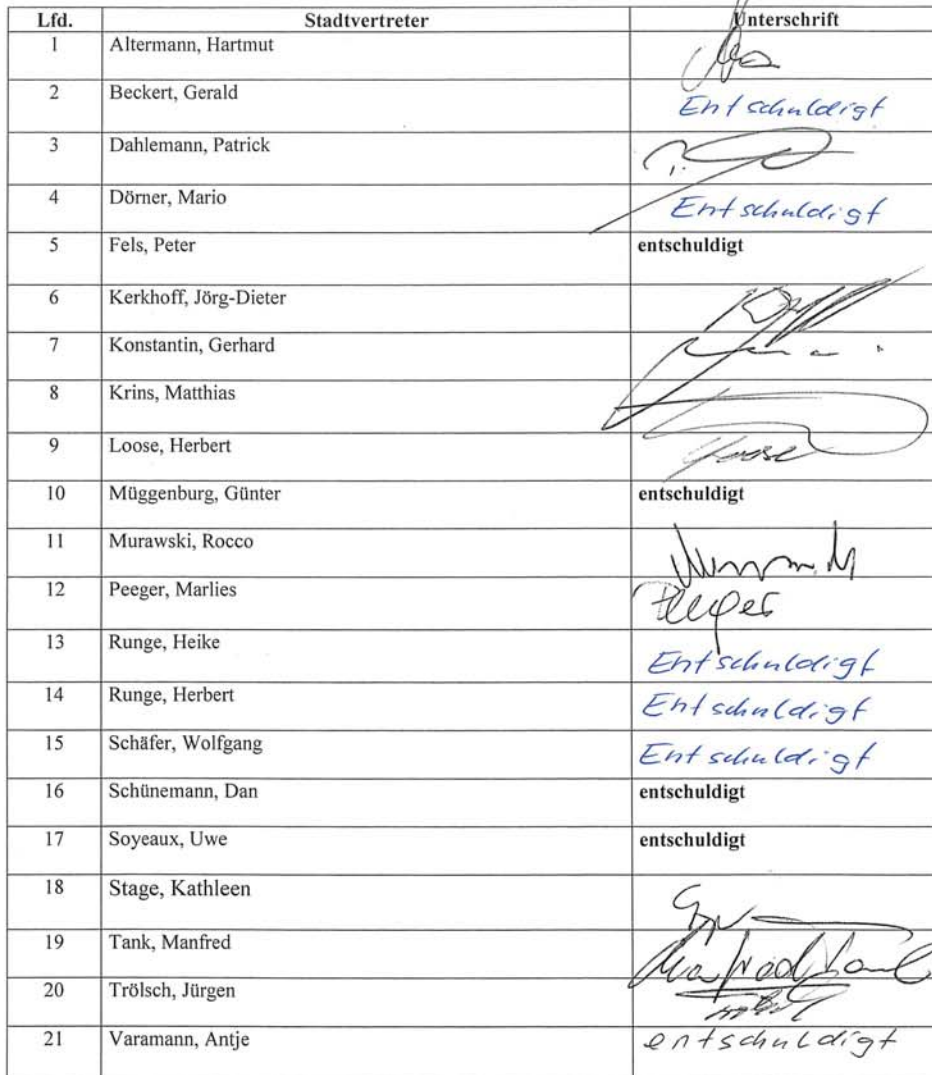 Lfd. Stadtvertreter Unterschrift
1 Altermann, Hartmut
2 Beckert, Gerald Entschuldigt
3 Dahlemann, Patrick
4 Dörner, Mario Entschuldigt
5 Fels, Peter entschuldigt
6 Kerkhoff, Jörg-Dieter
7 Konstantin, Gerhard
8 Krins, Matthias
9 Loose, Herbert Loose
10 Müggenburg, Günter entschuldigt
11 Murawski, Rocco
12 Peeger, Marlies Peeger
13 Runge, Heike Entschuldigt
14 Runge, Herbert Entschuldigt
15 Schäfer, Wolfgang Entschuldigt
16 Schünemann, Dan entschuldigt
17 Soyeaux, Uwe entschuldigt
18 Stage, Kathleen
19 Tank, Manfred Manfred Tank
20 Trölsch, Jürgen
21 Varamann, Antje entschuldigt